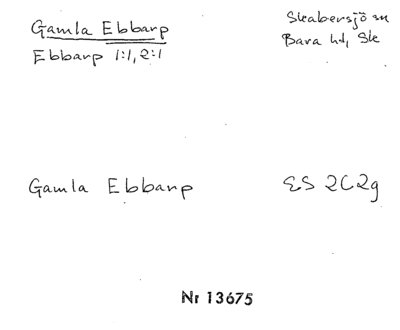 Gamla Ebbarp
Ebbarp 1:1, 2:1
Skabersjö sn
Bara hd, Sk
Gamla Ebbarp
ES 2C2g
Nr 13675